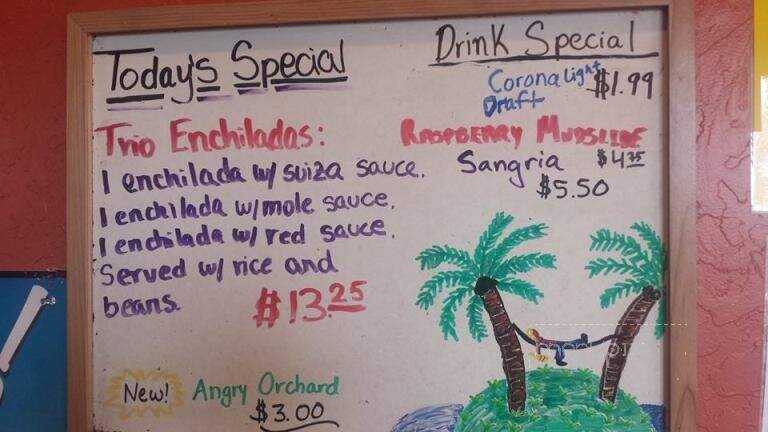 Today's Special
Trio Enchiladas:
1 enchilada w/ suiza sauce.
1 enchilada w/ mole sauce.
1 enchilada w/ red sauce.
Served w/ rice and
beans.
$13.25
New! Angry Orchard
$3.00
Drink Special
Corona Light $1.99
Draft
Raspberry Mudslide
$4.75
Sangria
$5.50